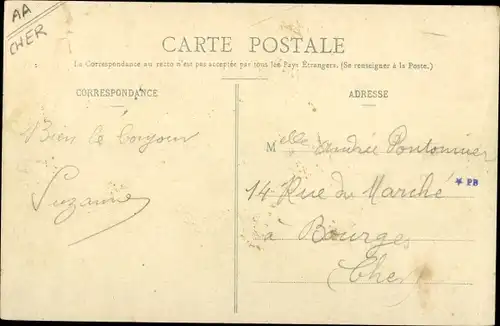 AA
CHER
CARTE POSTALE
La Correspondance au recto n'est pas acceptée par tous les Pays Étrangers. (Se renseigner à la Poste.)
CORRESPONDANCE
ADRESSE
Bien le bonjour
Suzanne
Melle Andrée Pontonnier
14 Rue du Marché
* PB
à Bourges
Cher